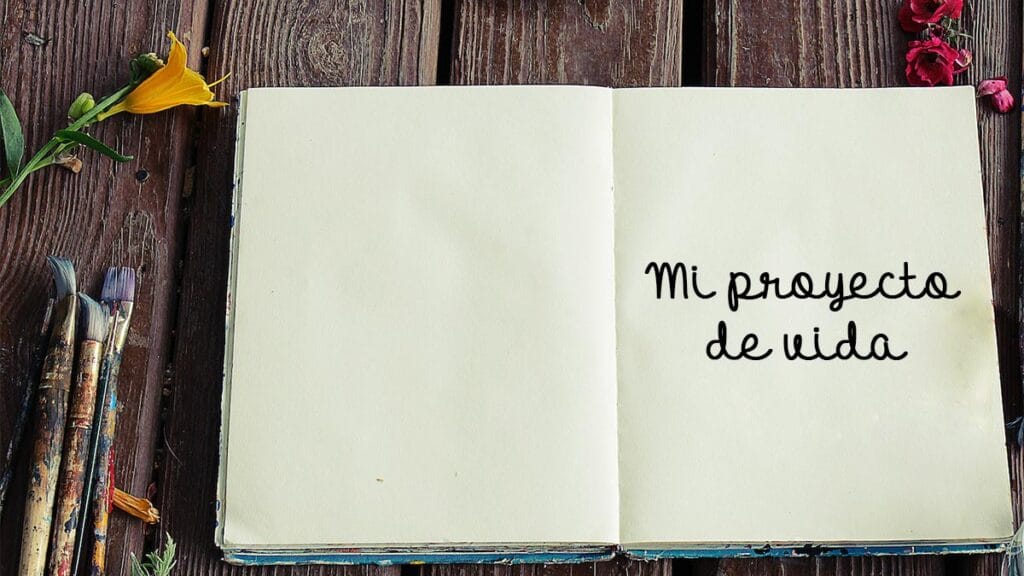 Mi proyecto
de vida